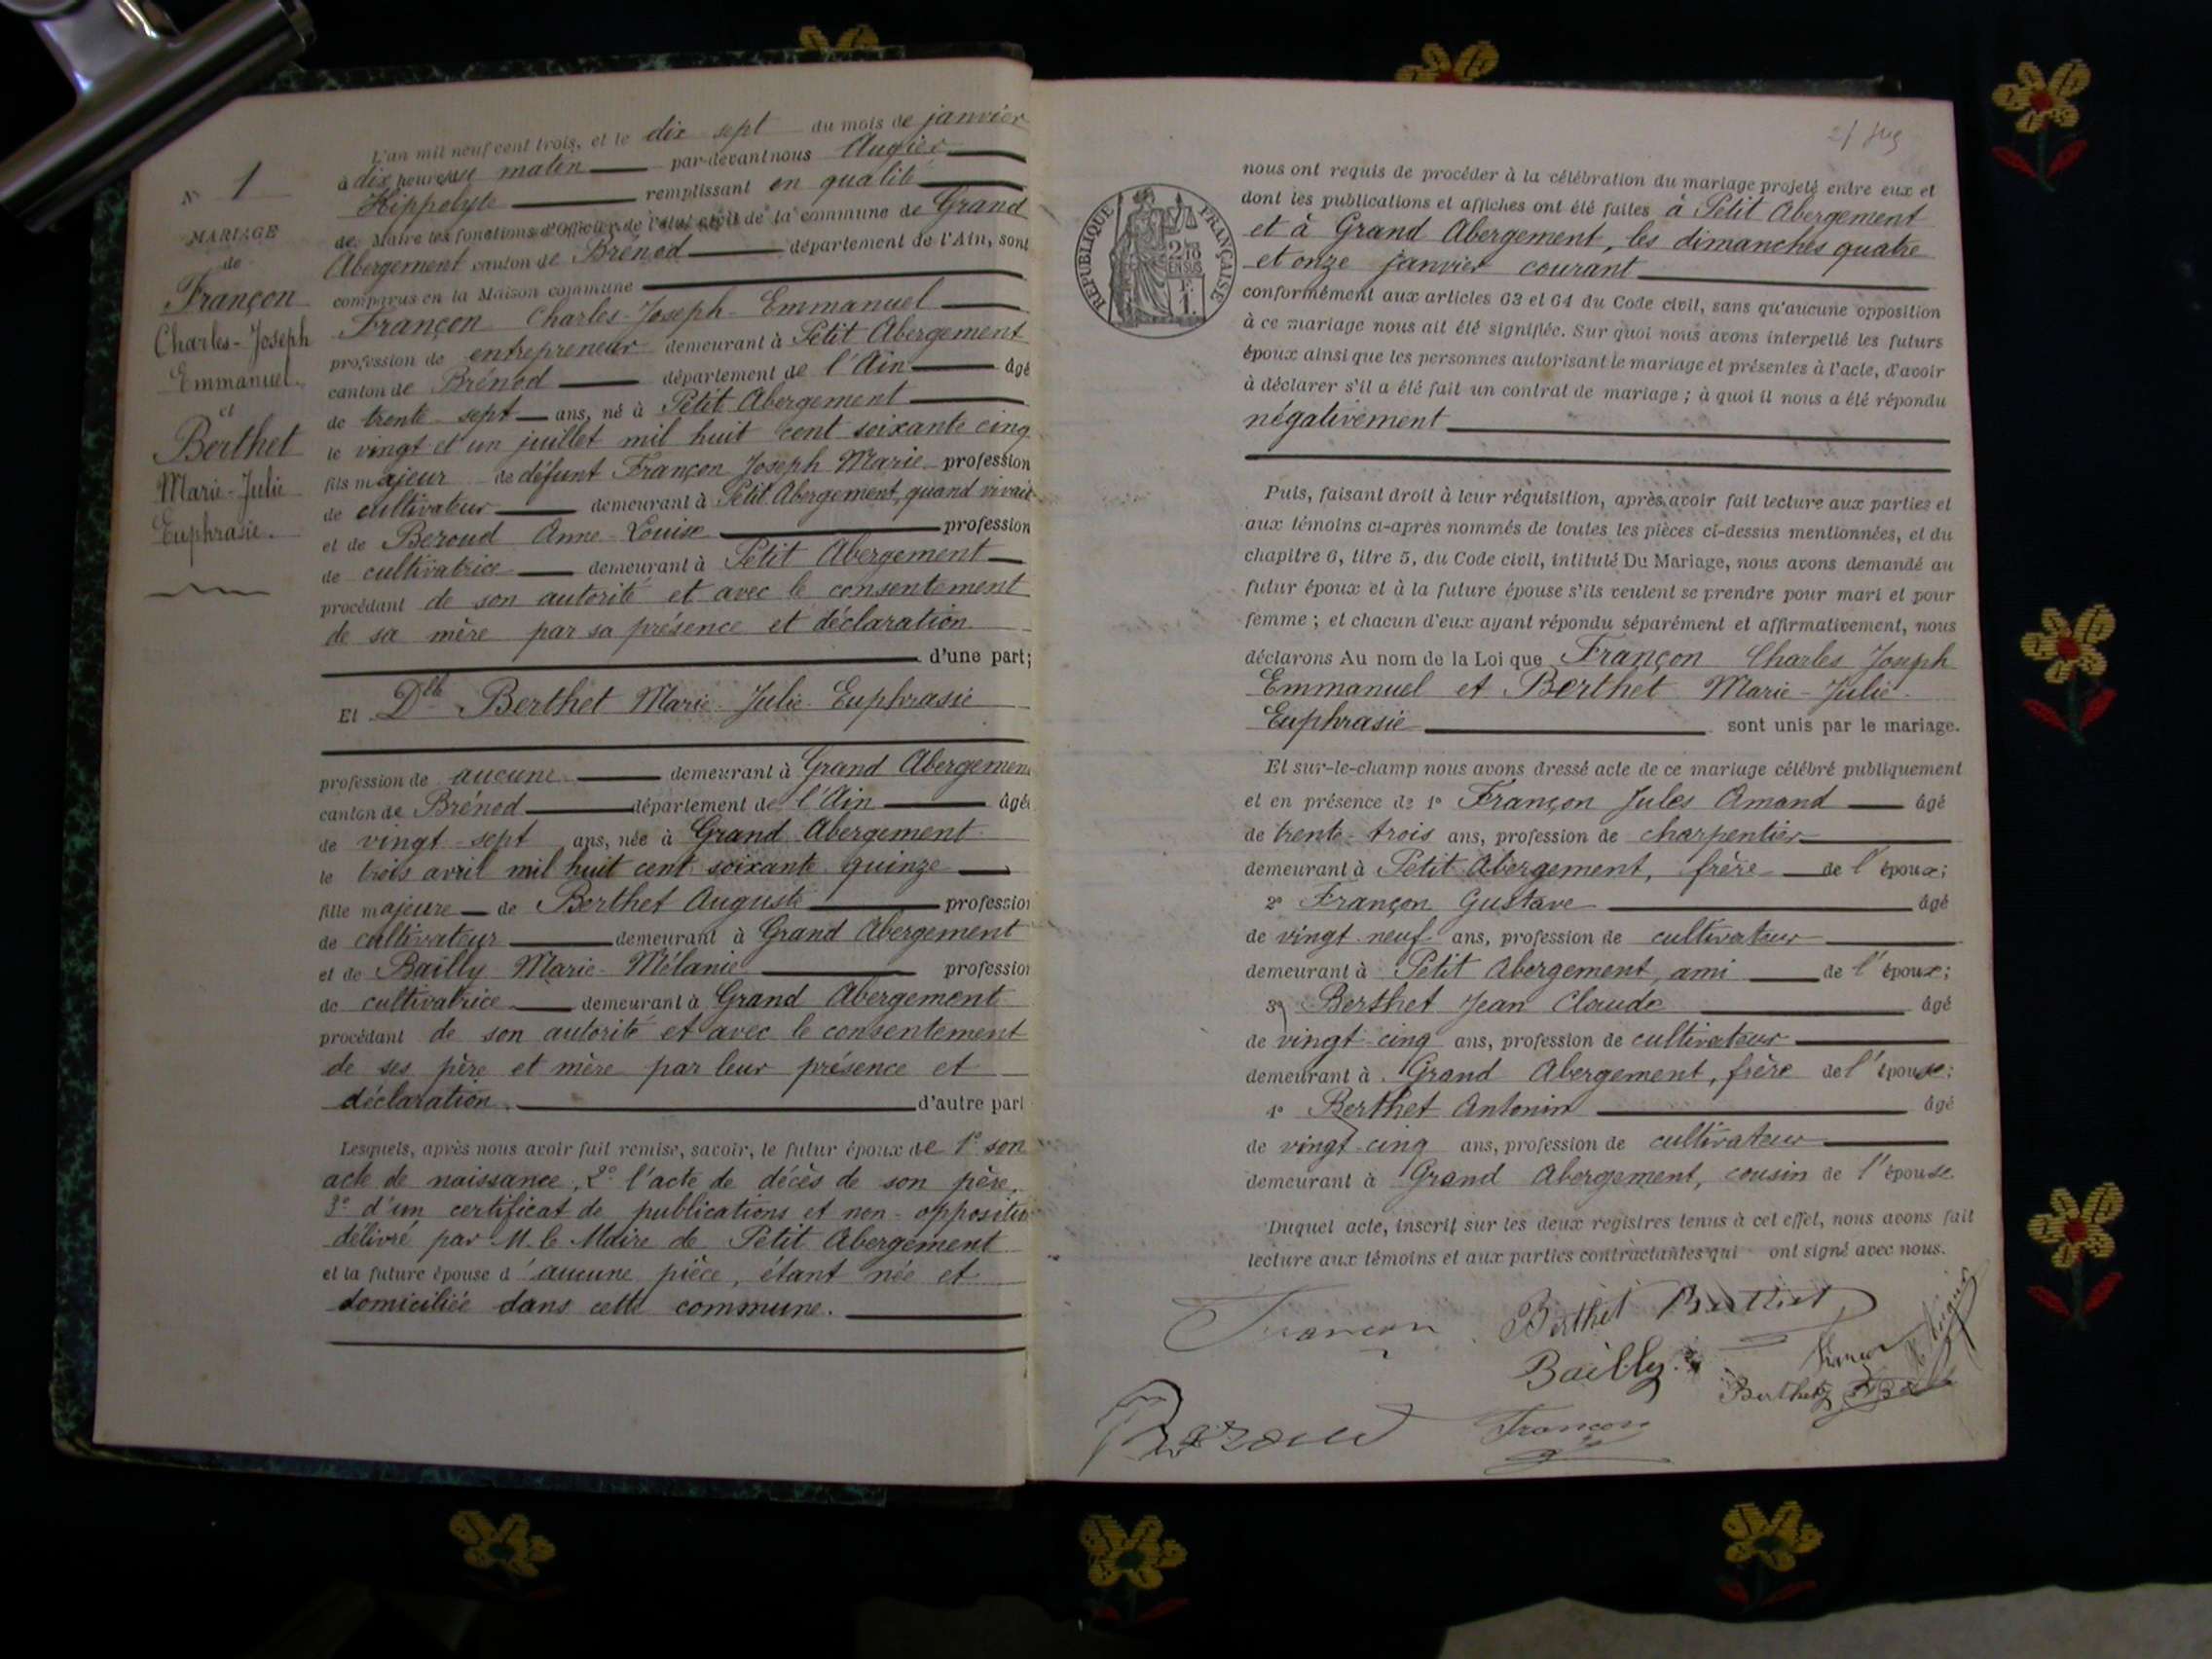 N° 1
MARIAGE
de
Françon
Charles-Joseph
Emmanuel.
et
Berthet
Marie-Julie
Euphrasie.
L'an mil neuf cent trois, et le dix sept du mois de janvier
à dix heures du matin par-devant nous Augier
Hippolyte remplissant en qualité
de Maire les fonctions d'Officier de l'état civil de la commune de Grand
Abergement canton de Brénod département de l'Ain, sont
comparus en la Maison commune
Françon Charles-Joseph-Emmanuel
profession de entrepreneur demeurant à Petit Abergement
canton de Brénod département de l'Ain âgé
de trente-sept ans, né à Petit Abergement
le vingt et un juillet mil huit cent soixante cinq
fils majeur de défunt Françon Joseph Marie profession
de cultivateur demeurant à Petit Abergement, quand vivait
et de Beroud Anne-Louise profession
de cultivatrice demeurant à Petit Abergement
procédant de son autorité et avec le consentement
de sa mère par sa présence et déclaration
d'une part;
Et Dlle Berthet Marie-Julie-Euphrasie
profession de aucune demeurant à Grand Abergement
canton de Brénod département de l'Ain âgée
de vingt-sept ans, née à Grand Abergement
le trois avril mil huit cent soixante quinze
fille majeure de Berthet Auguste profession
de cultivateur demeurant à Grand Abergement
et de Bailly Marie-Mélanie profession
de cultivatrice demeurant à Grand Abergement
procédant de son autorité et avec le consentement
de ses père et mère par leur présence et
déclaration. d'autre part
Lesquels, après nous avoir fait remise, savoir, le futur époux de 1° son
acte de naissance, 2° l'acte de décès de son père,
3° d'un certificat de publications et non-opposition
délivré par M. le Maire de Petit Abergement
et la future épouse d'aucune pièce, étant née et
domiciliée dans cette commune.
RÉPUBLIQUE FRANÇAISE
2/10
EN SUS
1F.
nous ont requis de procéder à la célébration du mariage projeté entre eux et
dont les publications et affiches ont été faites à Petit Abergement
et à Grand Abergement, les dimanches quatre
et onze janvier courant
conformément aux articles 63 et 64 du Code civil, sans qu'aucune opposition
à ce mariage nous ait été signifiée. Sur quoi nous avons interpellé les futurs
époux ainsi que les personnes autorisant le mariage et présentes à l'acte, d'avoir
à déclarer s'il a été fait un contrat de mariage ; à quoi il nous a été répondu
négativement
Puis, faisant droit à leur réquisition, après avoir fait lecture aux parties et
aux témoins ci-après nommés de toutes les pièces ci-dessus mentionnées, et du
chapitre 6, titre 5, du Code civil, intitulé Du Mariage, nous avons demandé au
futur époux et à la future épouse s'ils veulent se prendre pour mari et pour
femme ; et chacun d'eux ayant répondu séparément et affirmativement, nous
déclarons Au nom de la Loi que Françon Charles Joseph
Emmanuel et Berthet Marie-Julie-
Euphrasie sont unis par le mariage.
Et sur-le-champ nous avons dressé acte de ce mariage célébré publiquement
et en présence de 1° Françon Jules Amand âgé
de trente-trois ans, profession de charpentier
demeurant à Petit Abergement, frère de l'époux;
2° Françon Gustave âgé
de vingt-neuf ans, profession de cultivateur
demeurant à Petit Abergement, ami de l'époux;
3° Berthet Jean Claude âgé
de vingt-cinq ans, profession de cultivateur
demeurant à Grand Abergement, frère de l'épouse;
4° Berthet Antonin âgé
de vingt-cinq ans, profession de cultivateur
demeurant à Grand Abergement, cousin de l'épouse
Duquel acte, inscrit sur les deux registres tenus à cet effet, nous avons fait
lecture aux témoins et aux parties contractantes qui ont signé avec nous.
Françon Berthet Berthet
Bailly Françon H Augier
Berthet
Beroud Françon